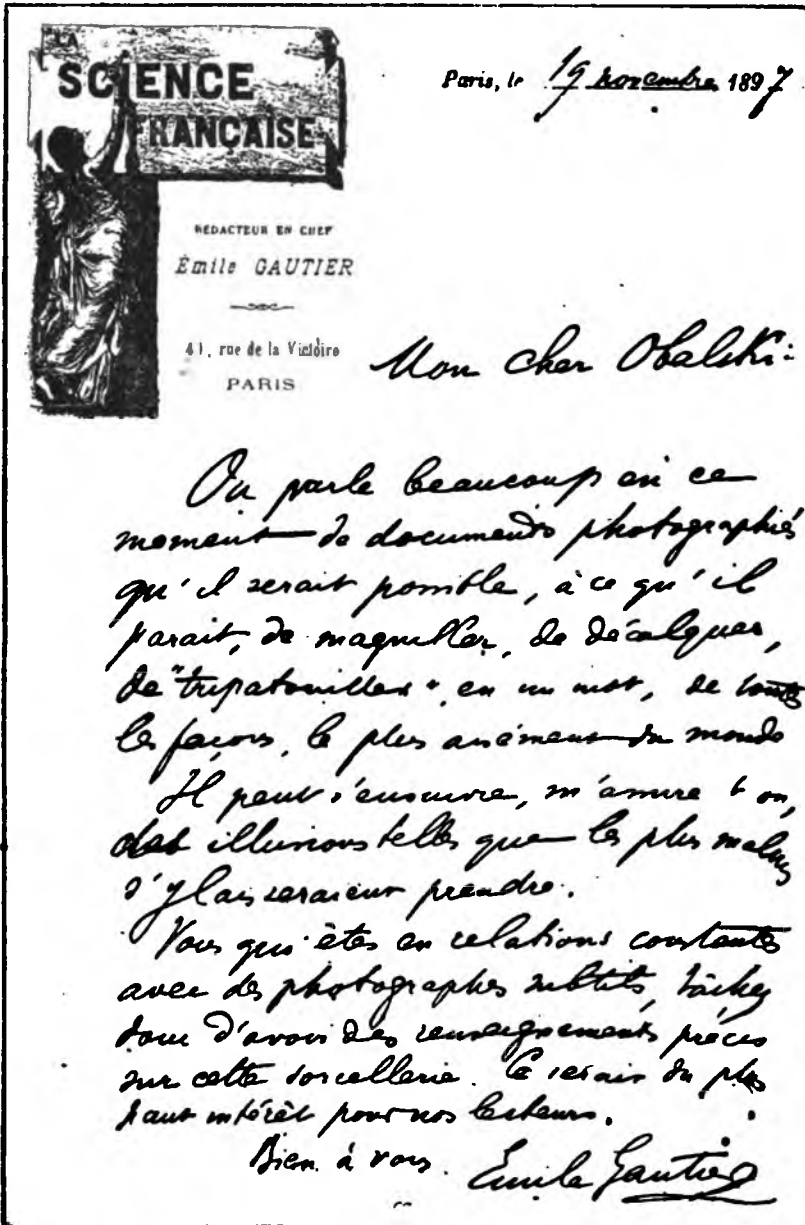 LA
SCIENCE
FRANÇAISE
Paris, le 19 novembre 1897
RÉDACTEUR EN CHEF
Émile GAUTIER
41, rue de la Victoire
PARIS
Mon cher Obalski:
On parle beaucoup en ce
moment de documents photographiés
qu'il serait possible, à ce qu'il
parait, de maquiller, de décalquer,
de "tripatouiller", en un mot, de toutes
les façons, le plus aisément du monde
Il peut s'ensuivre, m'assure t on,
des illusions telles que les plus malins
s'y laisseraient prendre.
Vous qui êtes en relations constantes
avec des photographes subtils, tâchez
donc d'avoir des renseignements précis
sur cette sorcellerie. Ce serait du plus
haut intérêt pour nos lecteurs.
Bien à vous.
Emile Gautier